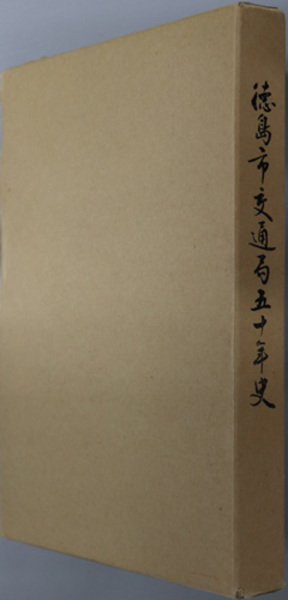 徳島市交通局五十年史